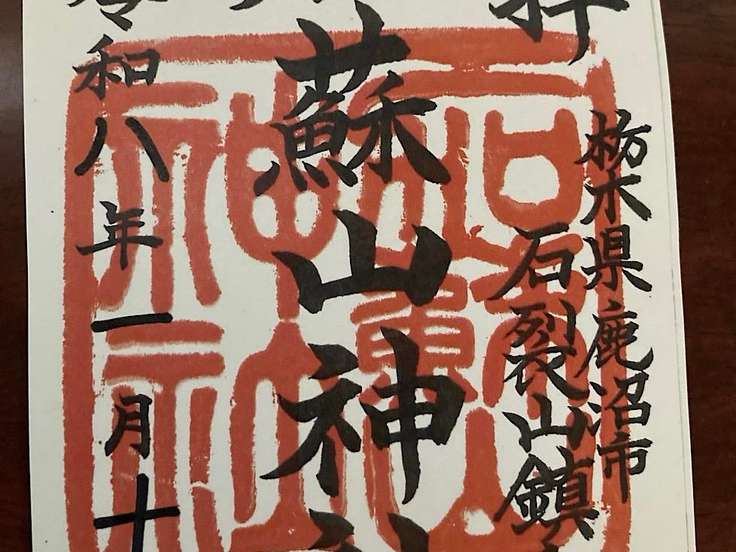 拝
栃木県鹿沼市
石裂山鎮
蘇山神
令和八年一月十